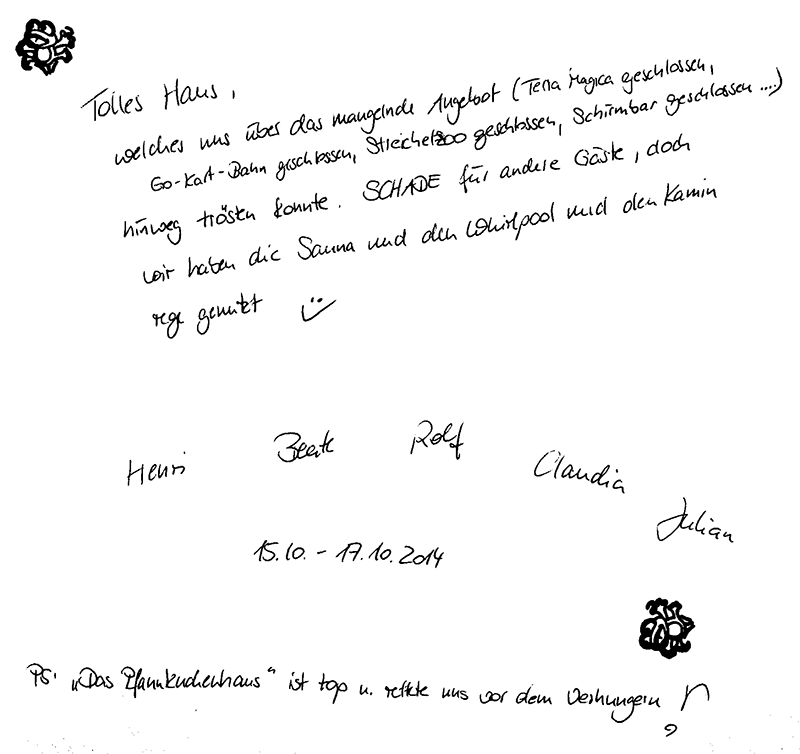 Tolles Haus,
welches uns über das mangelnde Angebot (Terra Magica geschlossen,
Go-Kart-Bahn geschlossen, Streichelzoo geschlossen, Schirmbar geschlossen ....)
hinweg trösten konnte. SCHADE für andere Gäste, doch
wir haben die Sauna und den Whirlpool und den Kamin
rege genutzt
Henri Beate Rolf Claudia Julian
15.10. - 17.10.2014
PS: „Das Pfannkuchenhaus“ ist top u. rettete uns vor dem Verhungern